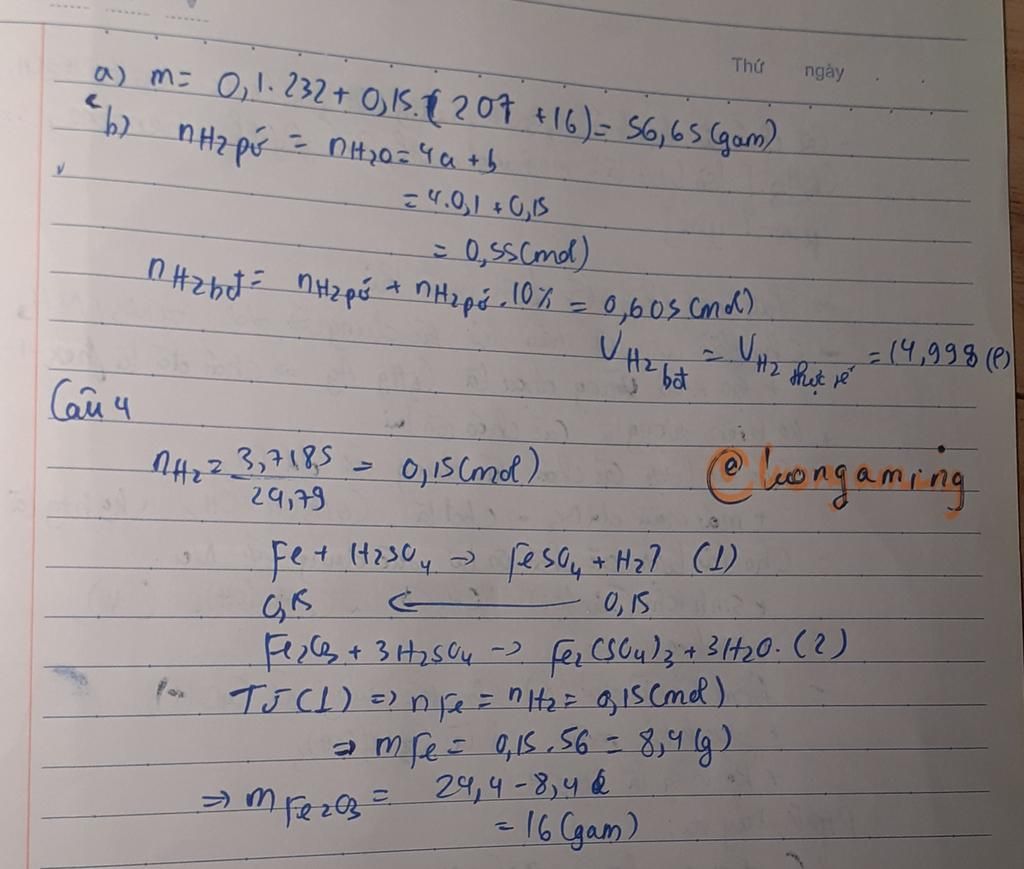 Thứ ngày
a) m = 0,1.232 + 0,15.(207 + 16) = 56,65 (gam)
b) nH2pứ = nH2O = 4a + b
= 4.0,1 + 0,15
= 0,55 (mol)
nH2bđ = nH2pứ + nH2pứ.10% = 0,605 (mol)
VH2 bđt = VH2 thực tế = 14,998 (l)
Câu 4
nH2 = 3,7185 / 24,79 = 0,15 (mol)
@luongaming
Fe + H2SO4 → FeSO4 + H2↑ (1)
0,15 ← 0,15
Fe2O3 + 3H2SO4 → Fe2(SO4)3 + 3H2O. (2)
Từ (1) ⇒ nFe = nH2 = 0,15 (mol)
⇒ mFe = 0,15.56 = 8,4 (g)
⇒ mFe2O3 = 24,4 - 8,4
= 16 (gam)